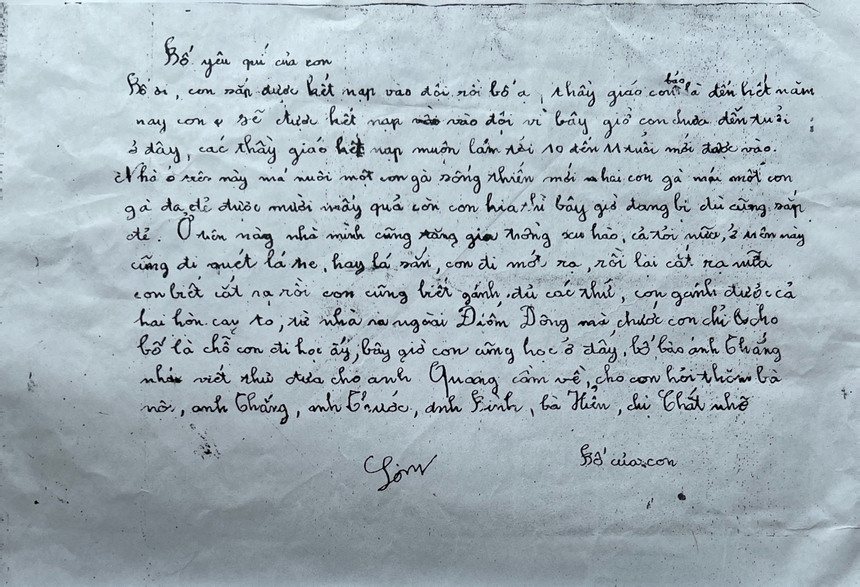 Bố yêu quí của con
Bố ơi, con sắp được kết nạp vào đội rồi bố ạ, thầy giáo con bảo là đến hết năm
nay con sẽ được kết nạp vào đội vì bây giờ con chưa đến tuổi
ở đây, các thầy giáo kết nạp muộn lắm tới 10 đến 11 tuổi mới được vào.
Nhà ở trên này má nuôi một con gà sống thiến mới hai con gà mái một con
gà đã đẻ được mười mấy quả còn con kia thì bây giờ đang bi dù cũng sắp
đẻ. Ở trên này nhà mình cũng tăng gia trồng xu hào, cả tỏi nữa, ở trên này
cũng đi quét lá tre, hay lá sắn, con đi mót ra, rồi lại cắt rạ nữa
con biết cắt rạ rồi con cũng biết gánh đủ các thứ, con gánh được cả
hai hòn cay to, từ nhà ra ngoài Điếm Dông mà chước con chỉ cho
bố là chỗ con đi học ấy, bây giờ con cũng học ở đấy, bố bảo anh Thắng
nhớ viết thư đưa cho anh Quang cầm về, cho con hỏi thăm bà
nội, anh Thắng, anh Trước, anh Kính, bà Hiền, dì Chắt nhớ
Bố của con